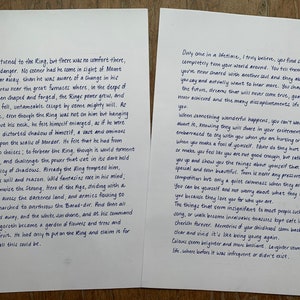 turned to the Ring, but there was no comfort there,
danger. No sooner had he come in sight of Mount
far away, than he was aware of a change in his
drew near the great furnaces where, in the deeps of
been shaped and forged, the Ring's power grew, and
fell, untameable except by some mighty will. As
, even though the Ring was not on him but hanging
out his neck, he felt himself enlarged, as if he were
distorted shadow of himself, a vast and ominous
upon the walls of Mordor. He felt that he had from
choices: to forbear the Ring, though it would torment
and challenge the power that sat in its dark hold
valley of shadows. Already the Ring tempted him,
will and reason. Wild fantasies rose in his mind;
Samwise the Strong, Hero of the Age, striding with a
across the darkened land, and armies flocking to
marched to overthrow the Barad-dûr. And then all
away, and the white sun shone, and at his command
Gorgoroth became a garden of flowers and trees and
fruit. He had only to put on the Ring and claim it for
all this could be.
Only once in a lifetime, I truly believe, you find s
completely turn your world around. You tell them
you've never shared with another soul and they ab
you say and actually want to hear more. You share
the future, dreams that will never come true, goa
never achieved and the many disappointments life
you.
When something wonderful happens, you can't wa
about it, knowing they will share in your excitemen
embarrassed to cry with you when you are hurting o
when you make a fool of yourself. Never do they hurt
or make you feel like you are not good enough, but rat
you up and show you the things about yourself that
special and even beautiful. There is never any pressure
competition but only a quiet calmness when they are
You can be yourself and not worry about what they
you because they love you for who you are.
The things that seem insignificant to most people such
song, or walk become invaluable treasures kept safe in
cherish forever. Memories of your childhood come back
clear and vivid it's like being young again.
Colours seem brighter and more brilliant. Laughter seems
life where before it was infrequent or didn't exist.